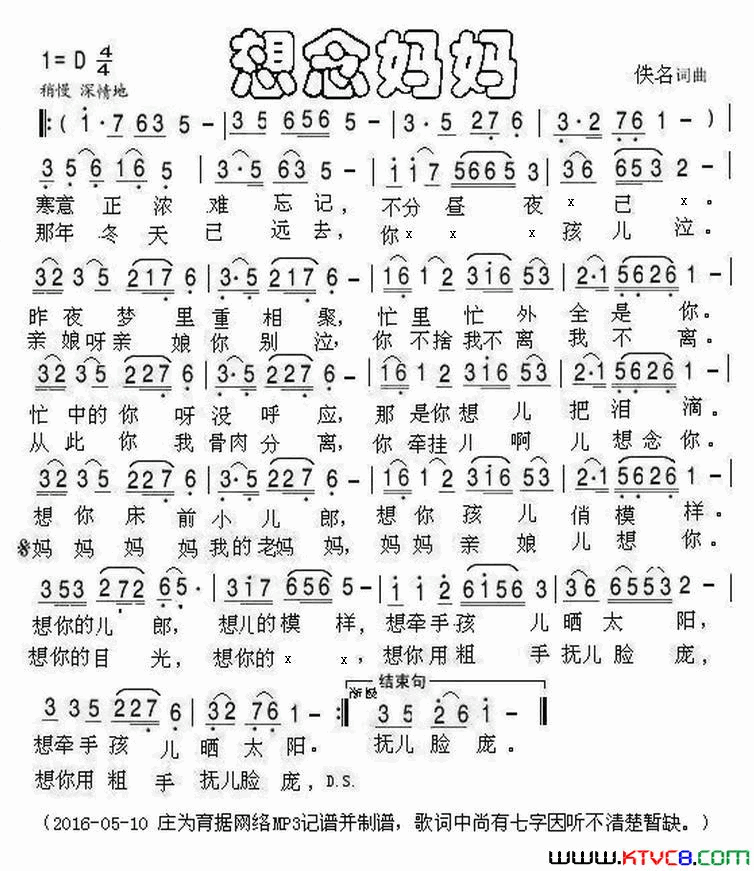 想念妈妈
1=D 4/4
稍慢 深情地
佚名词曲
‖:( i·7 63 5 - | 35 656 5 - | 3·5 27 6 - | 3·2 76 1 - ) |
3 56 16 5 | 3·5 63 5 - | i i7 5665 3 | 36 653 2 - |
寒意正浓难忘记，不分昼夜x已x。
那年冬天已远去，你x x x孩儿泣。
32 35 217 6 | 3·5 217 6 - | 16 12 3i6 53 | 2·1 5626 1 - |
昨夜梦里重相聚，忙里忙外全是你。
亲娘呀亲娘你别泣，你不捨我不离我不离。
32 35 227 6 | 3·5 227 6 - | 16 12 3i6 53 | 2·1 5626 1 - |
忙中的你呀没呼应，那是你想儿把泪滴。
从此你我骨肉分离，你牵挂儿啊儿想念你。
32 35 227 6 | 3·5 227 6 - | 16 12 3i6 53 | 2·1 5626 1 - |
想你床前小儿郎，想你孩儿俏模样。
妈妈妈妈我的老妈妈，妈妈亲娘儿想你。
353 272 65· | 3i7 656 5 - | i i2 6156 3 | 36 6553 2 - |
想你的儿郎，想儿的模样，想牵手孩儿晒太阳，
想你的目光，想你的x x，想你用粗手抚儿脸庞，
结束句
渐慢
3 35 227 6 | 32 76 1 - :‖ 35 26 i - ‖
想牵手孩儿晒太阳。抚儿脸庞。
想你用粗手抚儿脸庞，D.S.
（2016-05-10 庄为育据网络MP3记谱并制谱，歌词中尚有七字因听不清楚暂缺。）
www.KTVC8.com